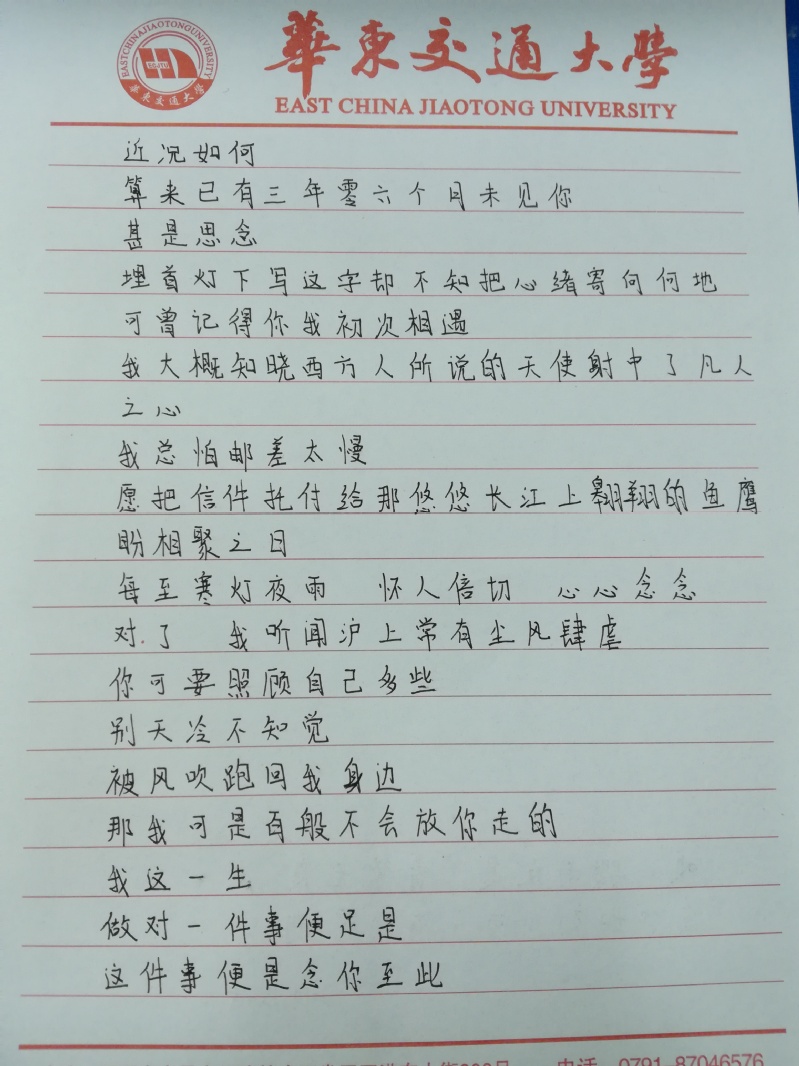 EASTCHINAJIAOTONGUNIVERSITY
ECJTU
華东交通大學
華东交通大學
EAST CHINA JIAOTONG UNIVERSITY
近况如何
算来已有三年零六个月未见你
甚是思念
埋首灯下写这字却不知把心绪寄向何地
可曾记得你我初次相遇
我大概知晓西方人所说的天使射中了凡人
之心
我总怕邮差太慢
愿把信件托付给那悠悠长江上翱翔的鱼鹰
盼相聚之日
每至寒灯夜雨 怀人倍切 心心念念
对了 我听闻沪上常有尘风肆虐
你可要照顾自己多些
别天冷不知觉
被风吹跑回我身边
那我可是百般不会放你走的
我这一生
做对一件事便足是
这件事便是念你至此
电话 0791-87046576